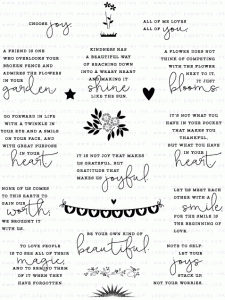 CHOOSE joy.
ALL OF ME LOVES
ALL OF you.
A FRIEND IS ONE
WHO OVERLOOKS YOUR
BROKEN FENCE AND
ADMIRES THE FLOWERS
IN YOUR
garden
KINDNESS HAS
A BEAUTIFUL WAY
OF REACHING DOWN
INTO A WEARY HEART
AND MAKING IT
shine
LIKE THE SUN.
A FLOWER DOES NOT
THINK OF COMPETING
WITH THE FLOWER
NEXT TO IT,
IT JUST
blooms.
GO FORWARD IN LIFE
WITH A TWINKLE IN
YOUR EYE AND A SMILE
ON YOUR FACE, AND
WITH GREAT PURPOSE
IN YOUR
heart
IT IS NOT JOY THAT MAKES
US GRATEFUL, BUT
GRATITUDE THAT
MAKES US joyful.
IT'S NOT WHAT YOU
HAVE IN YOUR POCKET
THAT MAKES YOU
THANKFUL,
BUT WHAT YOU HAVE
IN YOUR
heart.
NONE OF US COMES
TO THIS EARTH TO
GAIN OUR
worth,
WE BROUGHT IT
WITH US.
LET US MEET EACH
OTHER WITH A
smile
FOR THE SMILE IS
THE BEGINNING OF
LOVE.
BE YOUR OWN KIND OF
beautiful.
TO LOVE PEOPLE
IS TO SEE ALL OF THEIR
magic,
AND TO REMIND THEM
OF IT WHEN THEY
HAVE FORGOTTEN.
NOTE TO SELF:
LET YOUR
joys
STACK UP,
NOT YOUR WORRIES.